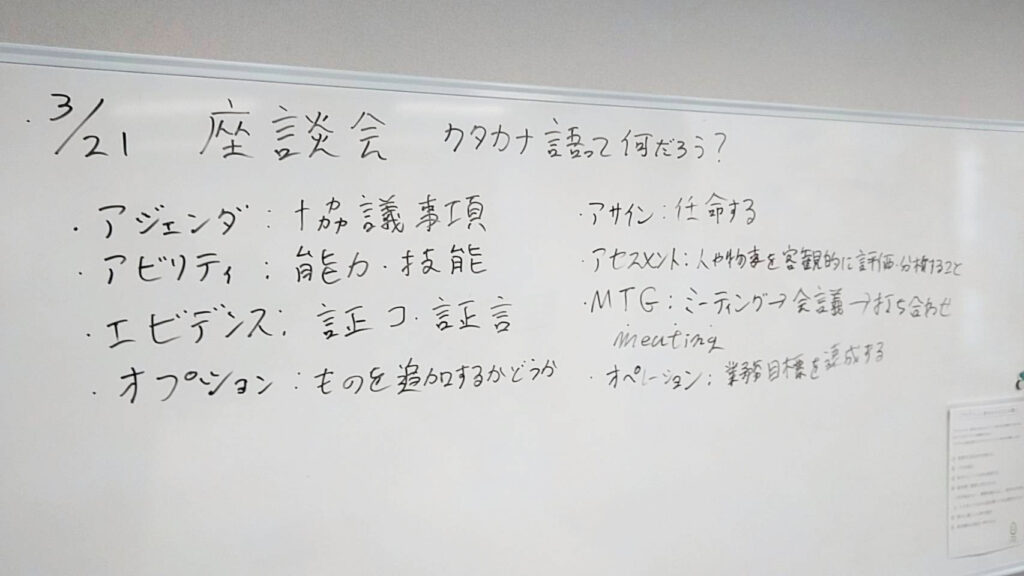 ・3/21 座談会 カタカナ語って何だろう?
・アジェンダ:協議事項
・アビリティ:能力・技能
・エビデンス:証コ・証言
・オプション:ものを追加するかどうか
・アサイン:任命する
・アセスメント:人や物事を客観的に評価・分析すること
・MTG:ミーティング→会議→打ち合わせ
meuting
・オペレーション:業務目標を達成する